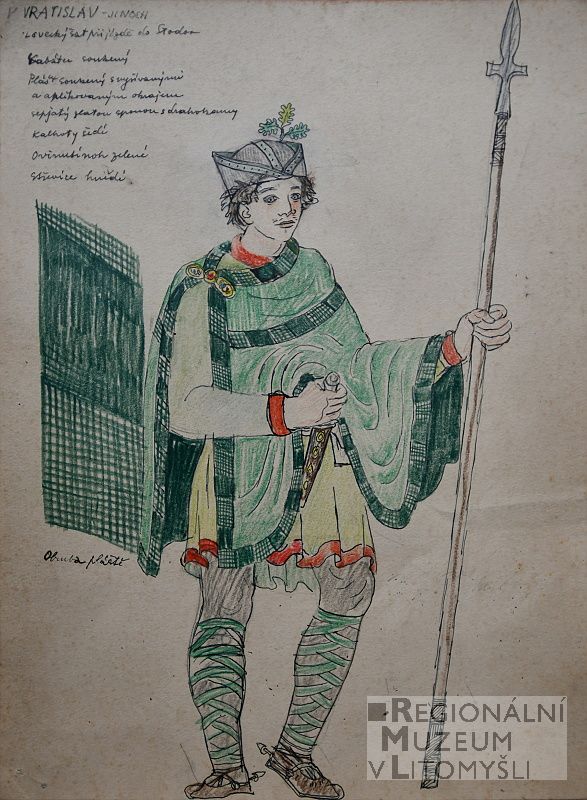 VRATISLAV - JINOCH
Lovecký šat při jízdě do Stodor
Kabátec soukený
Plášť soukený s vyšívanými
a aplikovaným okrajem
sepjatý zlatou sponou s drahokamy
Kalhoty šedé
Ovinutí noh zelené
Střevíce hnědé
Obruba pláště
REGIONÁLNÍ
MUZEUM
V LITOMYŠLI